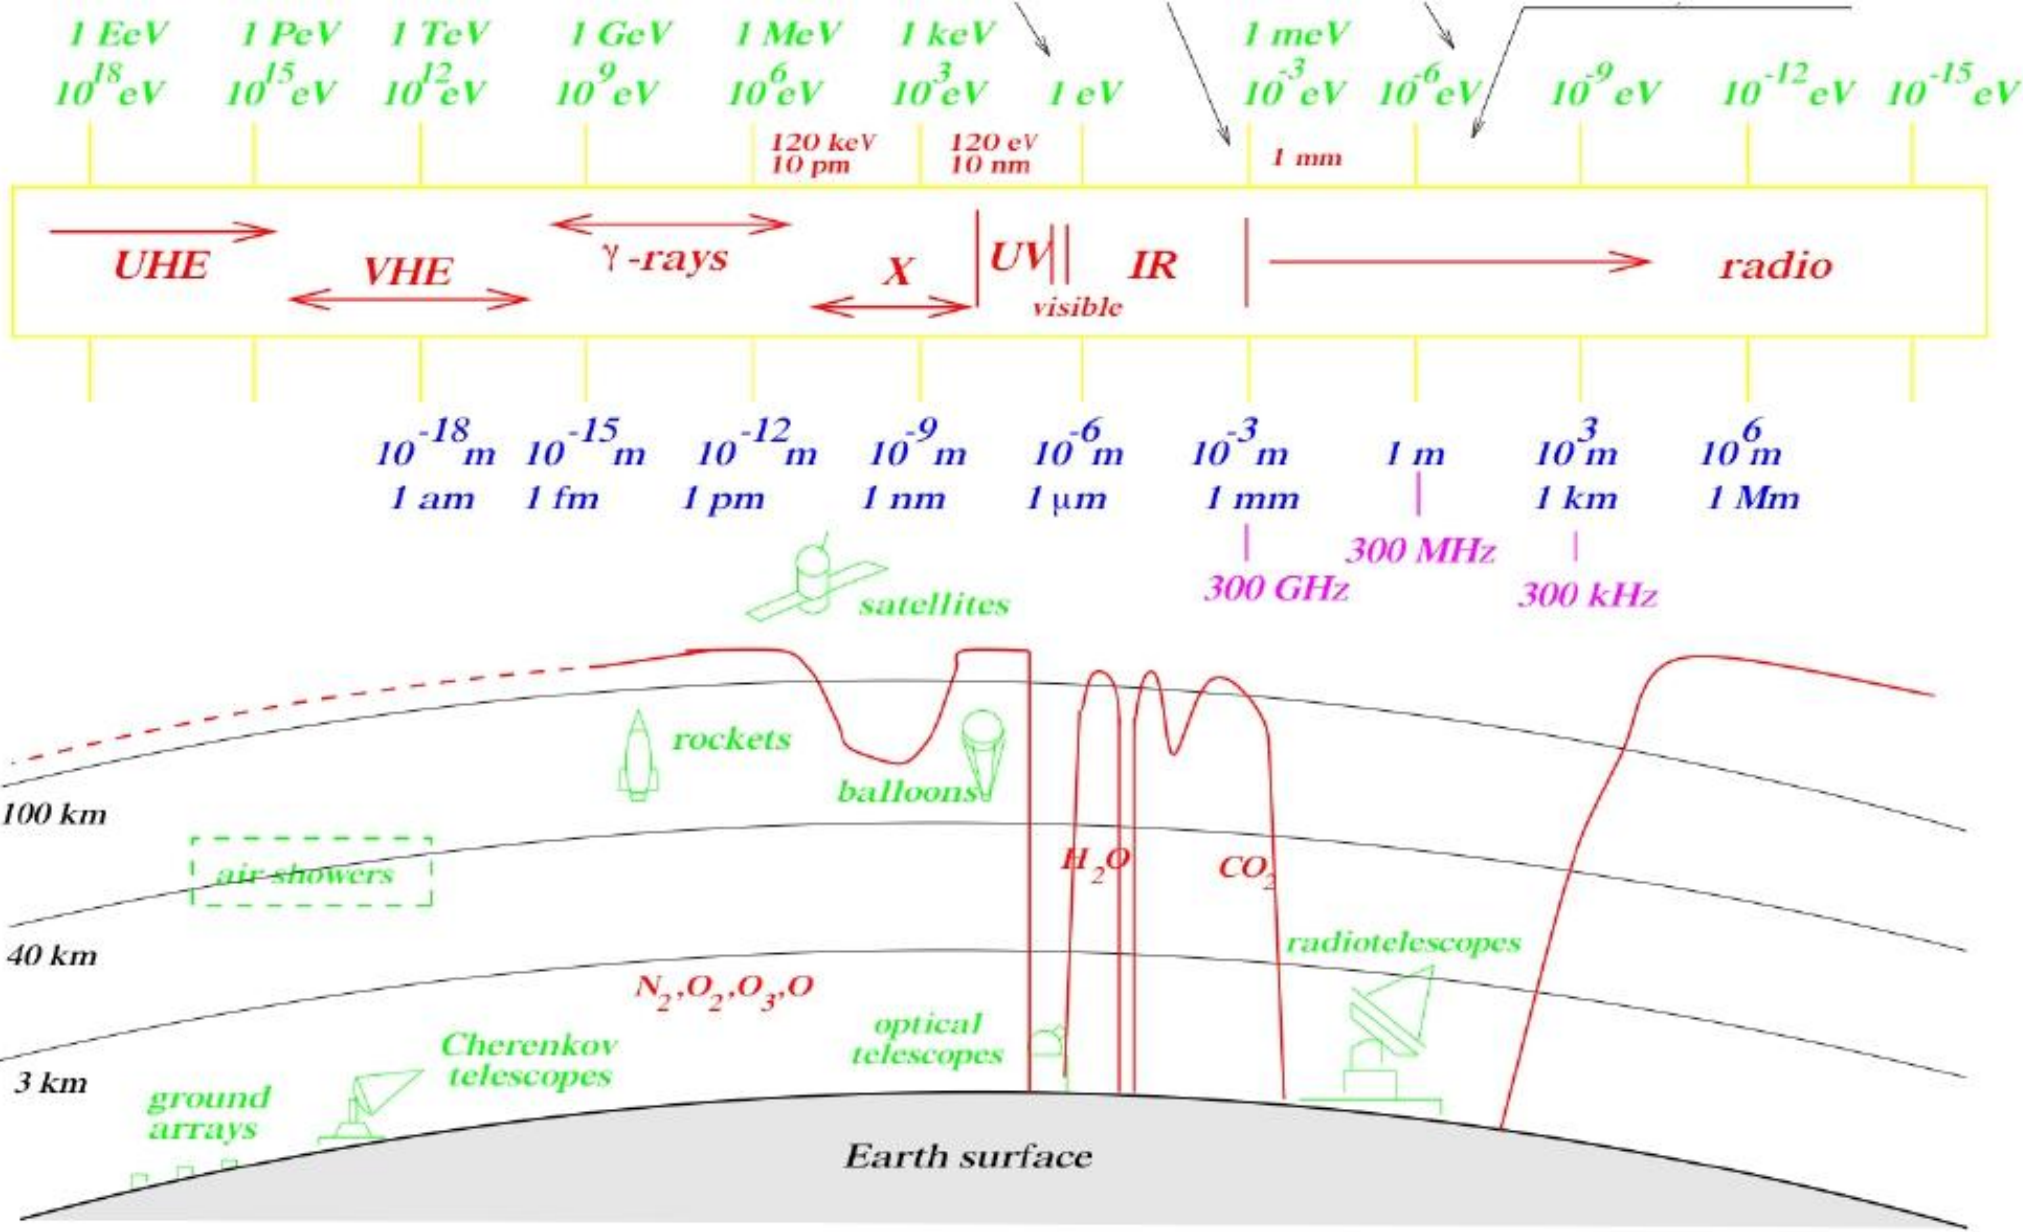 1 EeV 1 PeV 1 TeV 1 GeV 1 MeV 1 keV 1 meV
10^18 eV 10^15 eV 10^12 eV 10^9 eV 10^6 eV 10^3 eV 1 eV 10^-3 eV 10^-6 eV 10^-9 eV 10^-12 eV 10^-15 eV
120 keV 120 eV 1 mm
10 pm 10 nm
UHE VHE γ-rays X UV IR radio
visible
10^-18 m 10^-15 m 10^-12 m 10^-9 m 10^-6 m 10^-3 m 1 m 10^3 m 10^6 m
1 am 1 fm 1 pm 1 nm 1 μm 1 mm 1 km 1 Mm
300 MHz
300 GHz 300 kHz
satellites
rockets
balloons
100 km
air showers
H2O CO2
40 km
radiotelescopes
N2,O2,O3,O
optical
telescopes
Cherenkov
telescopes
3 km
ground
arrays
Earth surface